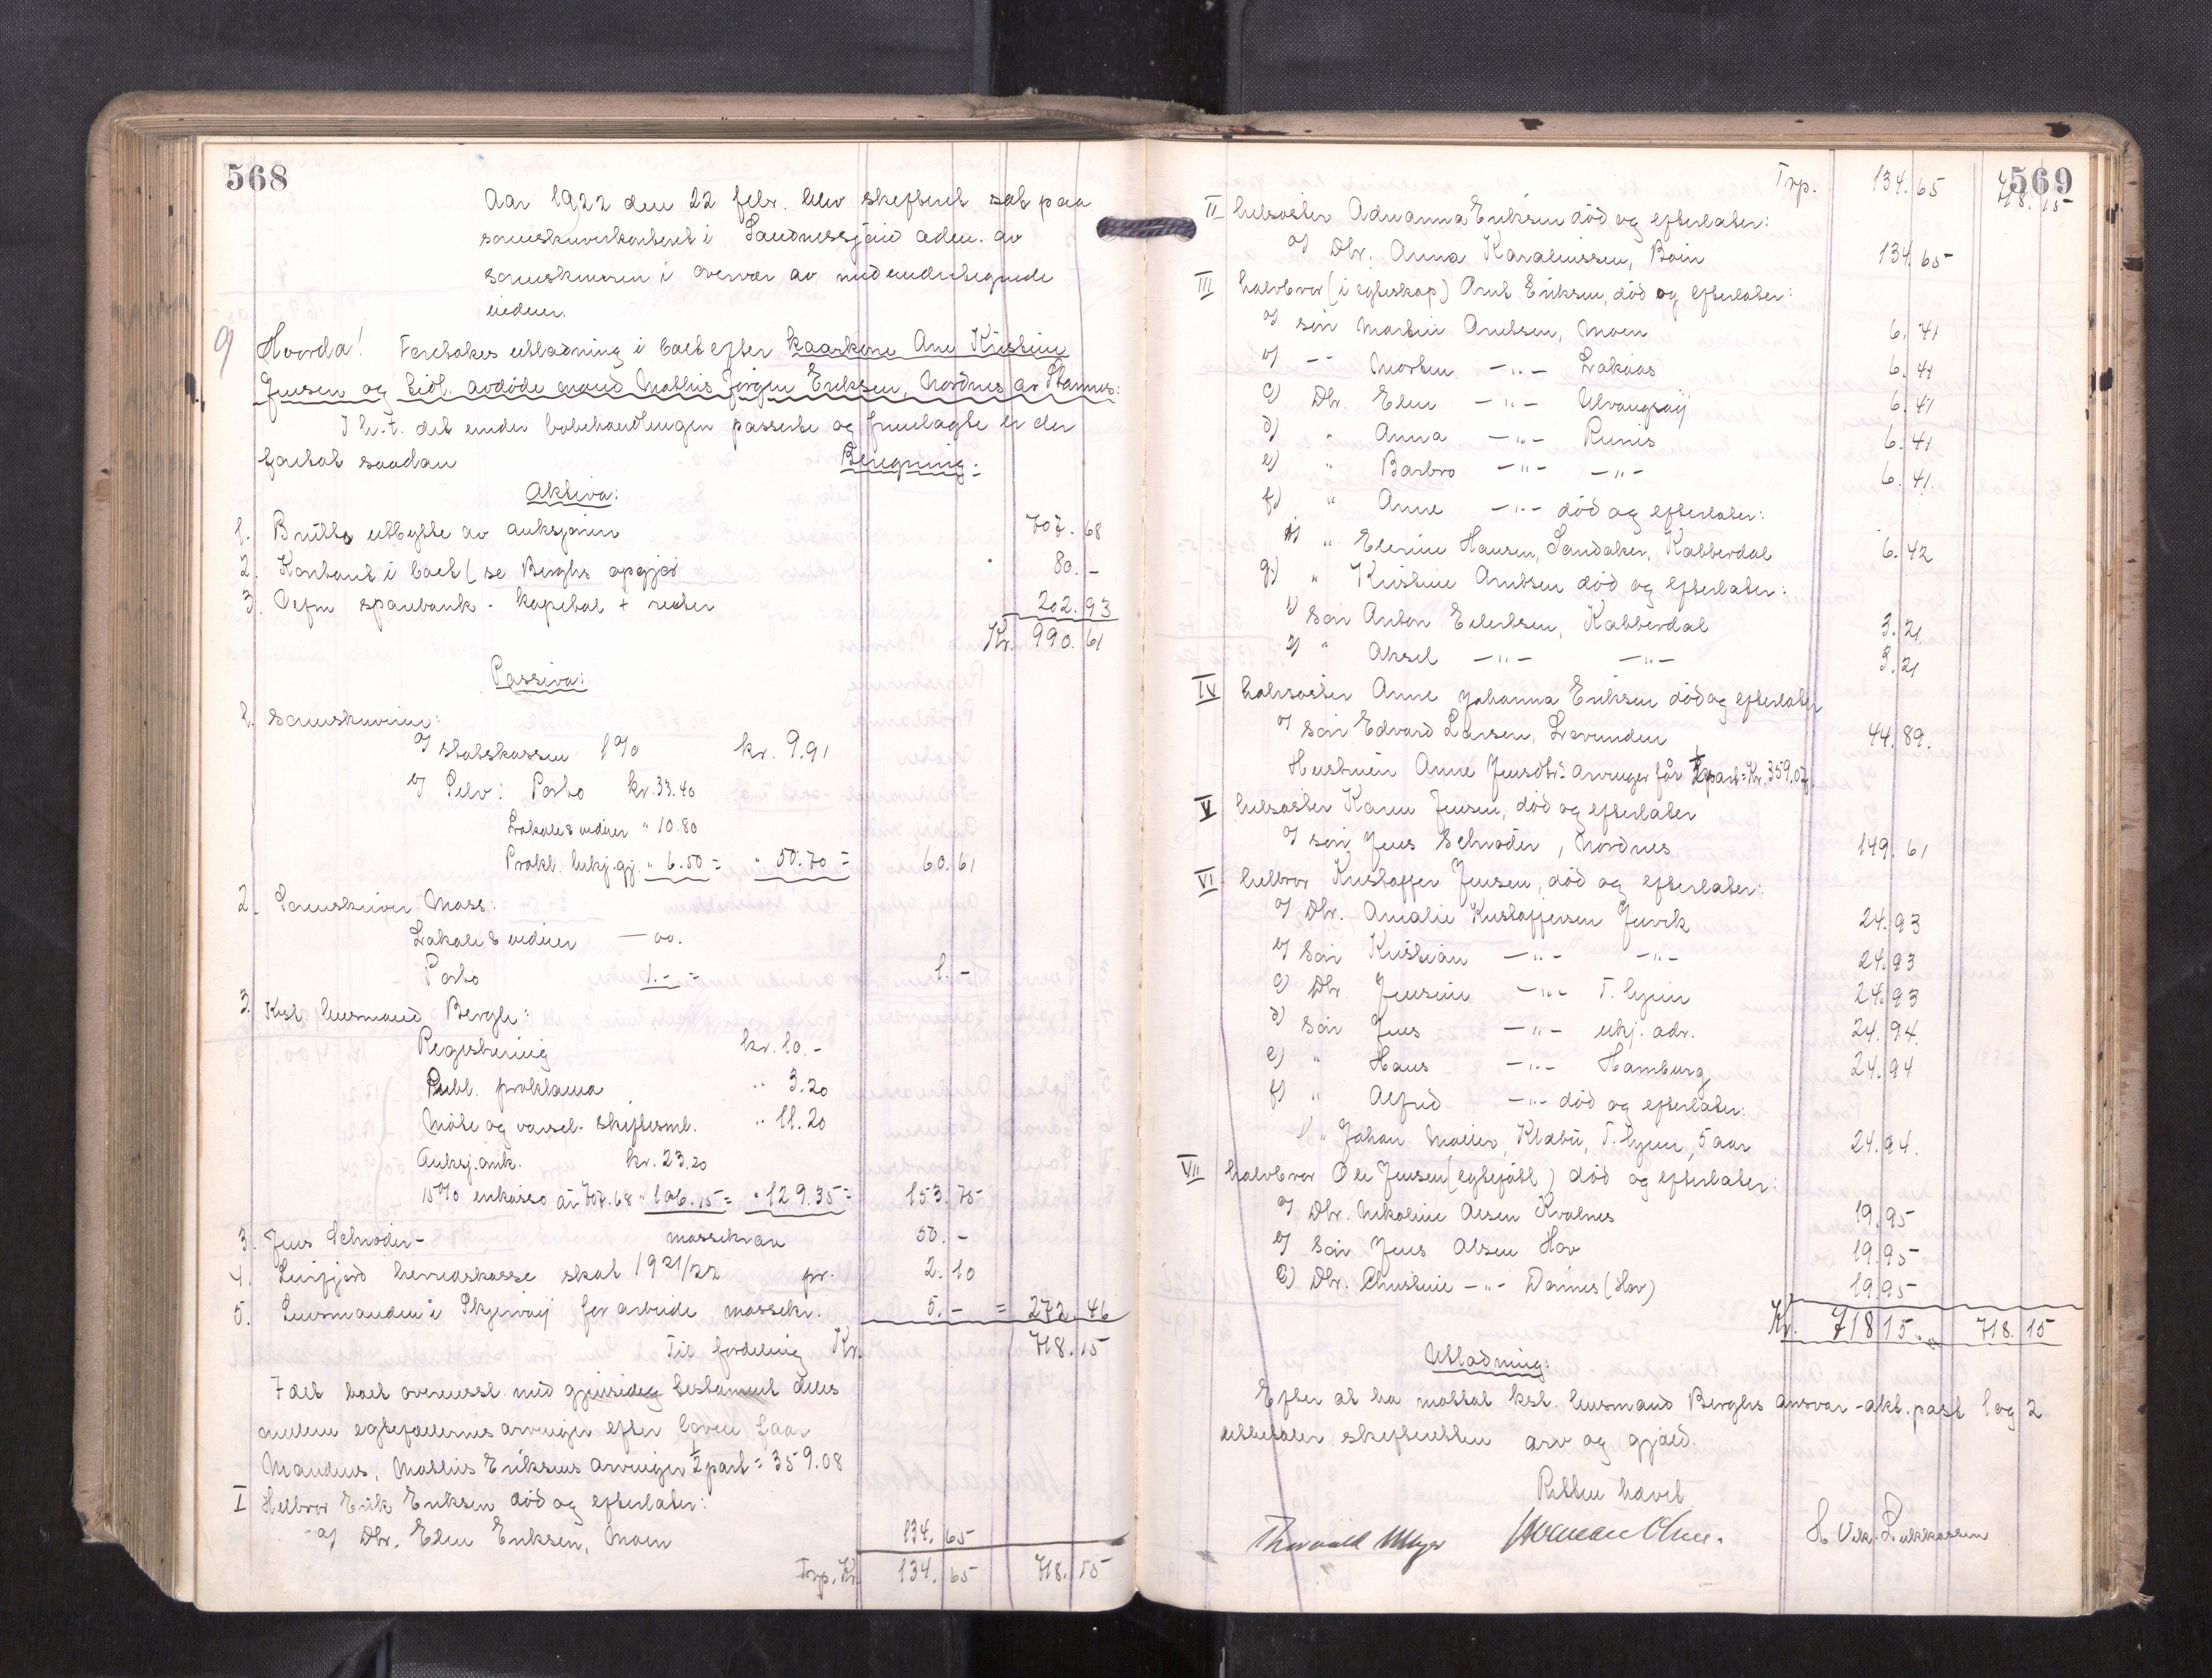 568
Aar 1922 den 22 febr. blev skifteret sat paa
sorenskriverkontoret i Sandnessjøen adm. av
sorenskriveren i overvær av medundertegnede
vidner.
9 Hvorda! Foretokes utlodning i boet efter kaarkone Ane Kristine
Jensen og tidl. avdøde mand Mathis Jørgen Eriksen, Nordnes av Stamnes:
I h.t. det under bobehandlingen passerte og fremlagte er der
fortat saadan Beregning:
Aktiva:
1. Brutto utbytte av auksjonen 707.68
2. Kontant i boet (se Berghs opgjør 80.-
3. Vefsn sparebank - kapital + renter 202.93
Kr. 990.61
Passiva:
1. Sorenskriveren:
a) statskassen 1% kr. 9.91
b) Selv: Porto kr. 33.40
Lokale & vidner " 10.80
Prokl. lysn.gj. " 6.50 = " 50.70 = 60.61
2. Sorenskriver Moss:
Lokale & vidner — oo.
Porto 1.- = 1.-
3. Kst. lensmand Bergh:
Registrering kr. 10.-
Publ. proklama " 3.20
Møte og varsel. skiftesml. " 11.20
Auksj.omk. kr. 23.20
15% inkasso av 707.68 " 106.15 = " 129.35 = 153.75
3. Jens Schrøder - massekrav 50.-
4. Leirfjord herredskasse skat 1921/22 pr. 2.10
5. Lensmanden i Skjervøy for arbeide massekr. 5.- = 272.46
Til fordeling Kr. 718.15
I det boet overensst. med gjensidig testament deles
mellem egtefællernes arvinger efter loven faar
Mandens, Mathis Eriksens arvinger 1/2 part = 359.08
I Helbror Erik Eriksen død og efterlater:
a) Dtr. Elen Eriksen, Moen 134.65
Trp. Kr. 134.65 718.15
569
Trp. 134.65 718.15
II helsøster Adrianna Eriksen død og efterlater:
a) Dtr. Anna Karolinssen, Boen 134.65
III halvbror (i egteskap) Arnt Eriksen, død og efterlater:
a) søn Martin Arntsen, Moen 6.41
b) -- Morten -"- Lakaas 6.41
c) Dtr. Elen -"- Ulvangsøy 6.41
d) " Anna -"- Runes 6.41
e) " Barbro -"- -"- 6.41.
f) " Anne -"- død og efterlater:
1) " Elerine Hansen, Sandaker, Kabberdal 6.42
g) " Kristine Arntsen død og efterlater:
1) Søn Anton Eilertsen, Kabberdal 3.21
2) " Aksel -"- -"- 3.21
IV halvsøster Anne Johanna Eriksen død og efterlater
a) søn Edvard Larsen, Lovunden 44.89.
Hustruen Anne Jensdtr.s arvinger får 1/2 part = Kr. 359.07.
V helsøster Karen Jensen, død og efterlater
a) søn Jens Schrøder, Nordnes 149.61
VI helbror Kristoffer Jensen, død og efterlater:
a) Dtr. Amalie Kristoffersen Jurvik 24.93
b) Søn Kristian -"- -"- 24.93
c) Dtr. Jensine -"- T.hjem 24.93
d) Søn Jens -"- ukj. adr. 24.94.
e) " Hans -"- Hamburg 24.94
f) " Alfred -"- død og efterlater:
1) " Johan Meier, Klæbu, T.hjem, 5 aar 24.94.
VII halvbror Ole Jensen (egtefødt) død og efterlater:
a) Dtr. Nikoline Olsen Kvalnes 19.95
b) Søn Jens Olsen Hov 19.95
c) Dtr. Christine -"- Dønnes (Hov) 19.95
Kr. 718 15.. 718.15
Utlodning:
Efter at ha mottat kst. lensmand Berghs ansvar - akt. post 1 og 2
utbetaler skifteretten arv og gjæld.
Retten hævet.
Thorvald Meyer Herman Olsen. H Vik. Lukkassen